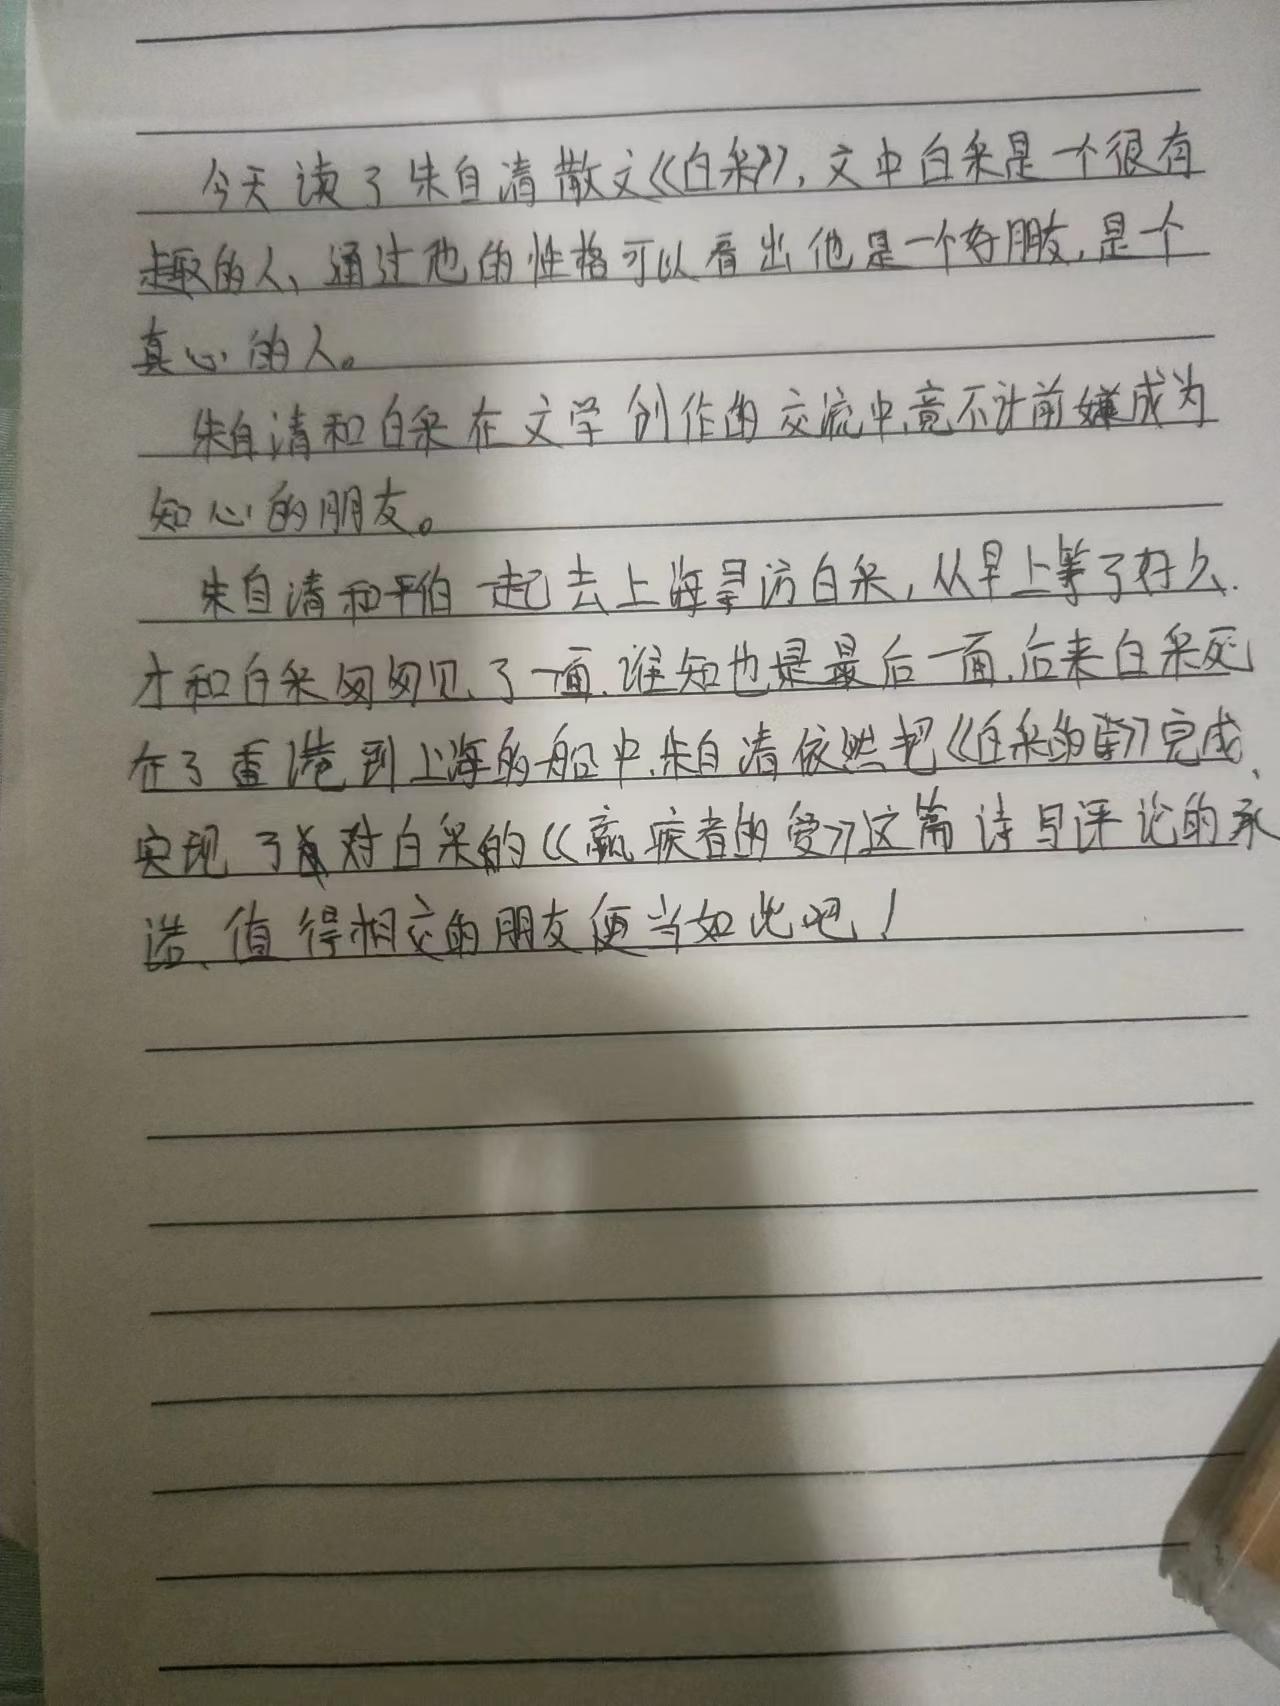 今天读了朱自清散文《白采》，文中白采是一个很有
趣的人、通过他的性格可以看出他是一个好朋友,是一个
真心的人。
朱自清和白采在文学创作的交流中,竟不计前嫌成为
知心的朋友。
朱自清和平伯一起去上海寻访白采，从早上等了好久.
才和白采匆匆见了一面.谁知也是最后一面.后来白采死
在了香港到上海的船中.朱自清依然把《白采的诗》完成、
实现了对白采的《羸疾者的爱》这篇诗写评论的承
诺、值得相交的朋友便当如此吧！